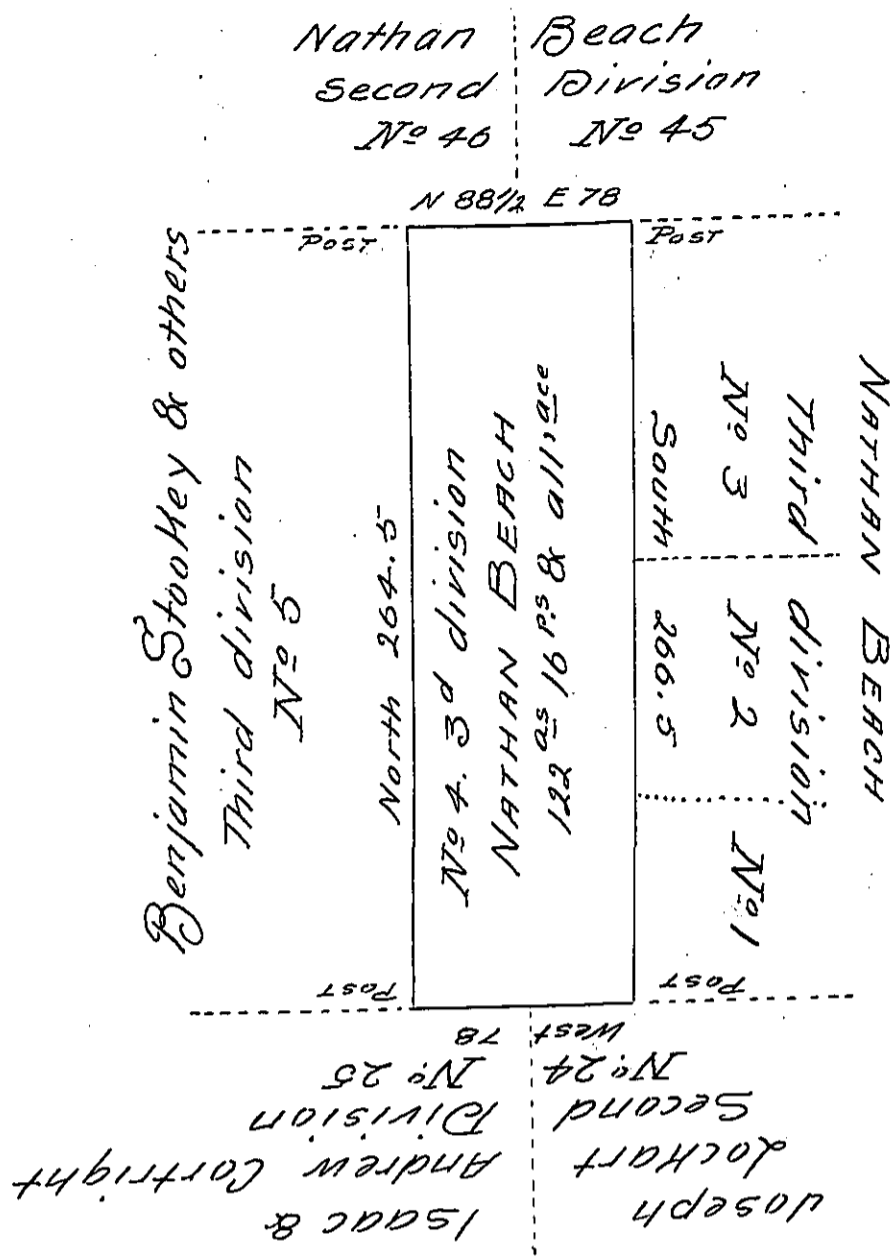 Nathan Beach
Second Division
Nº 46 Nº 45
N 88½ E 78
Post
Post
Benjamin Stookey & others
Third division
Nº 5
North 264.5
Nº 4. 3d division
NATHAN BEACH
122 as 16 ps & all,ace
South 266.5
Nº 3
Nº 2
Nº 1
Third division
NATHAN BEACH
Post
Post
West 78
Nº 24
Second
Lockart
Joseph
Nº 25
Division
Andrew Cortright
Isaac &